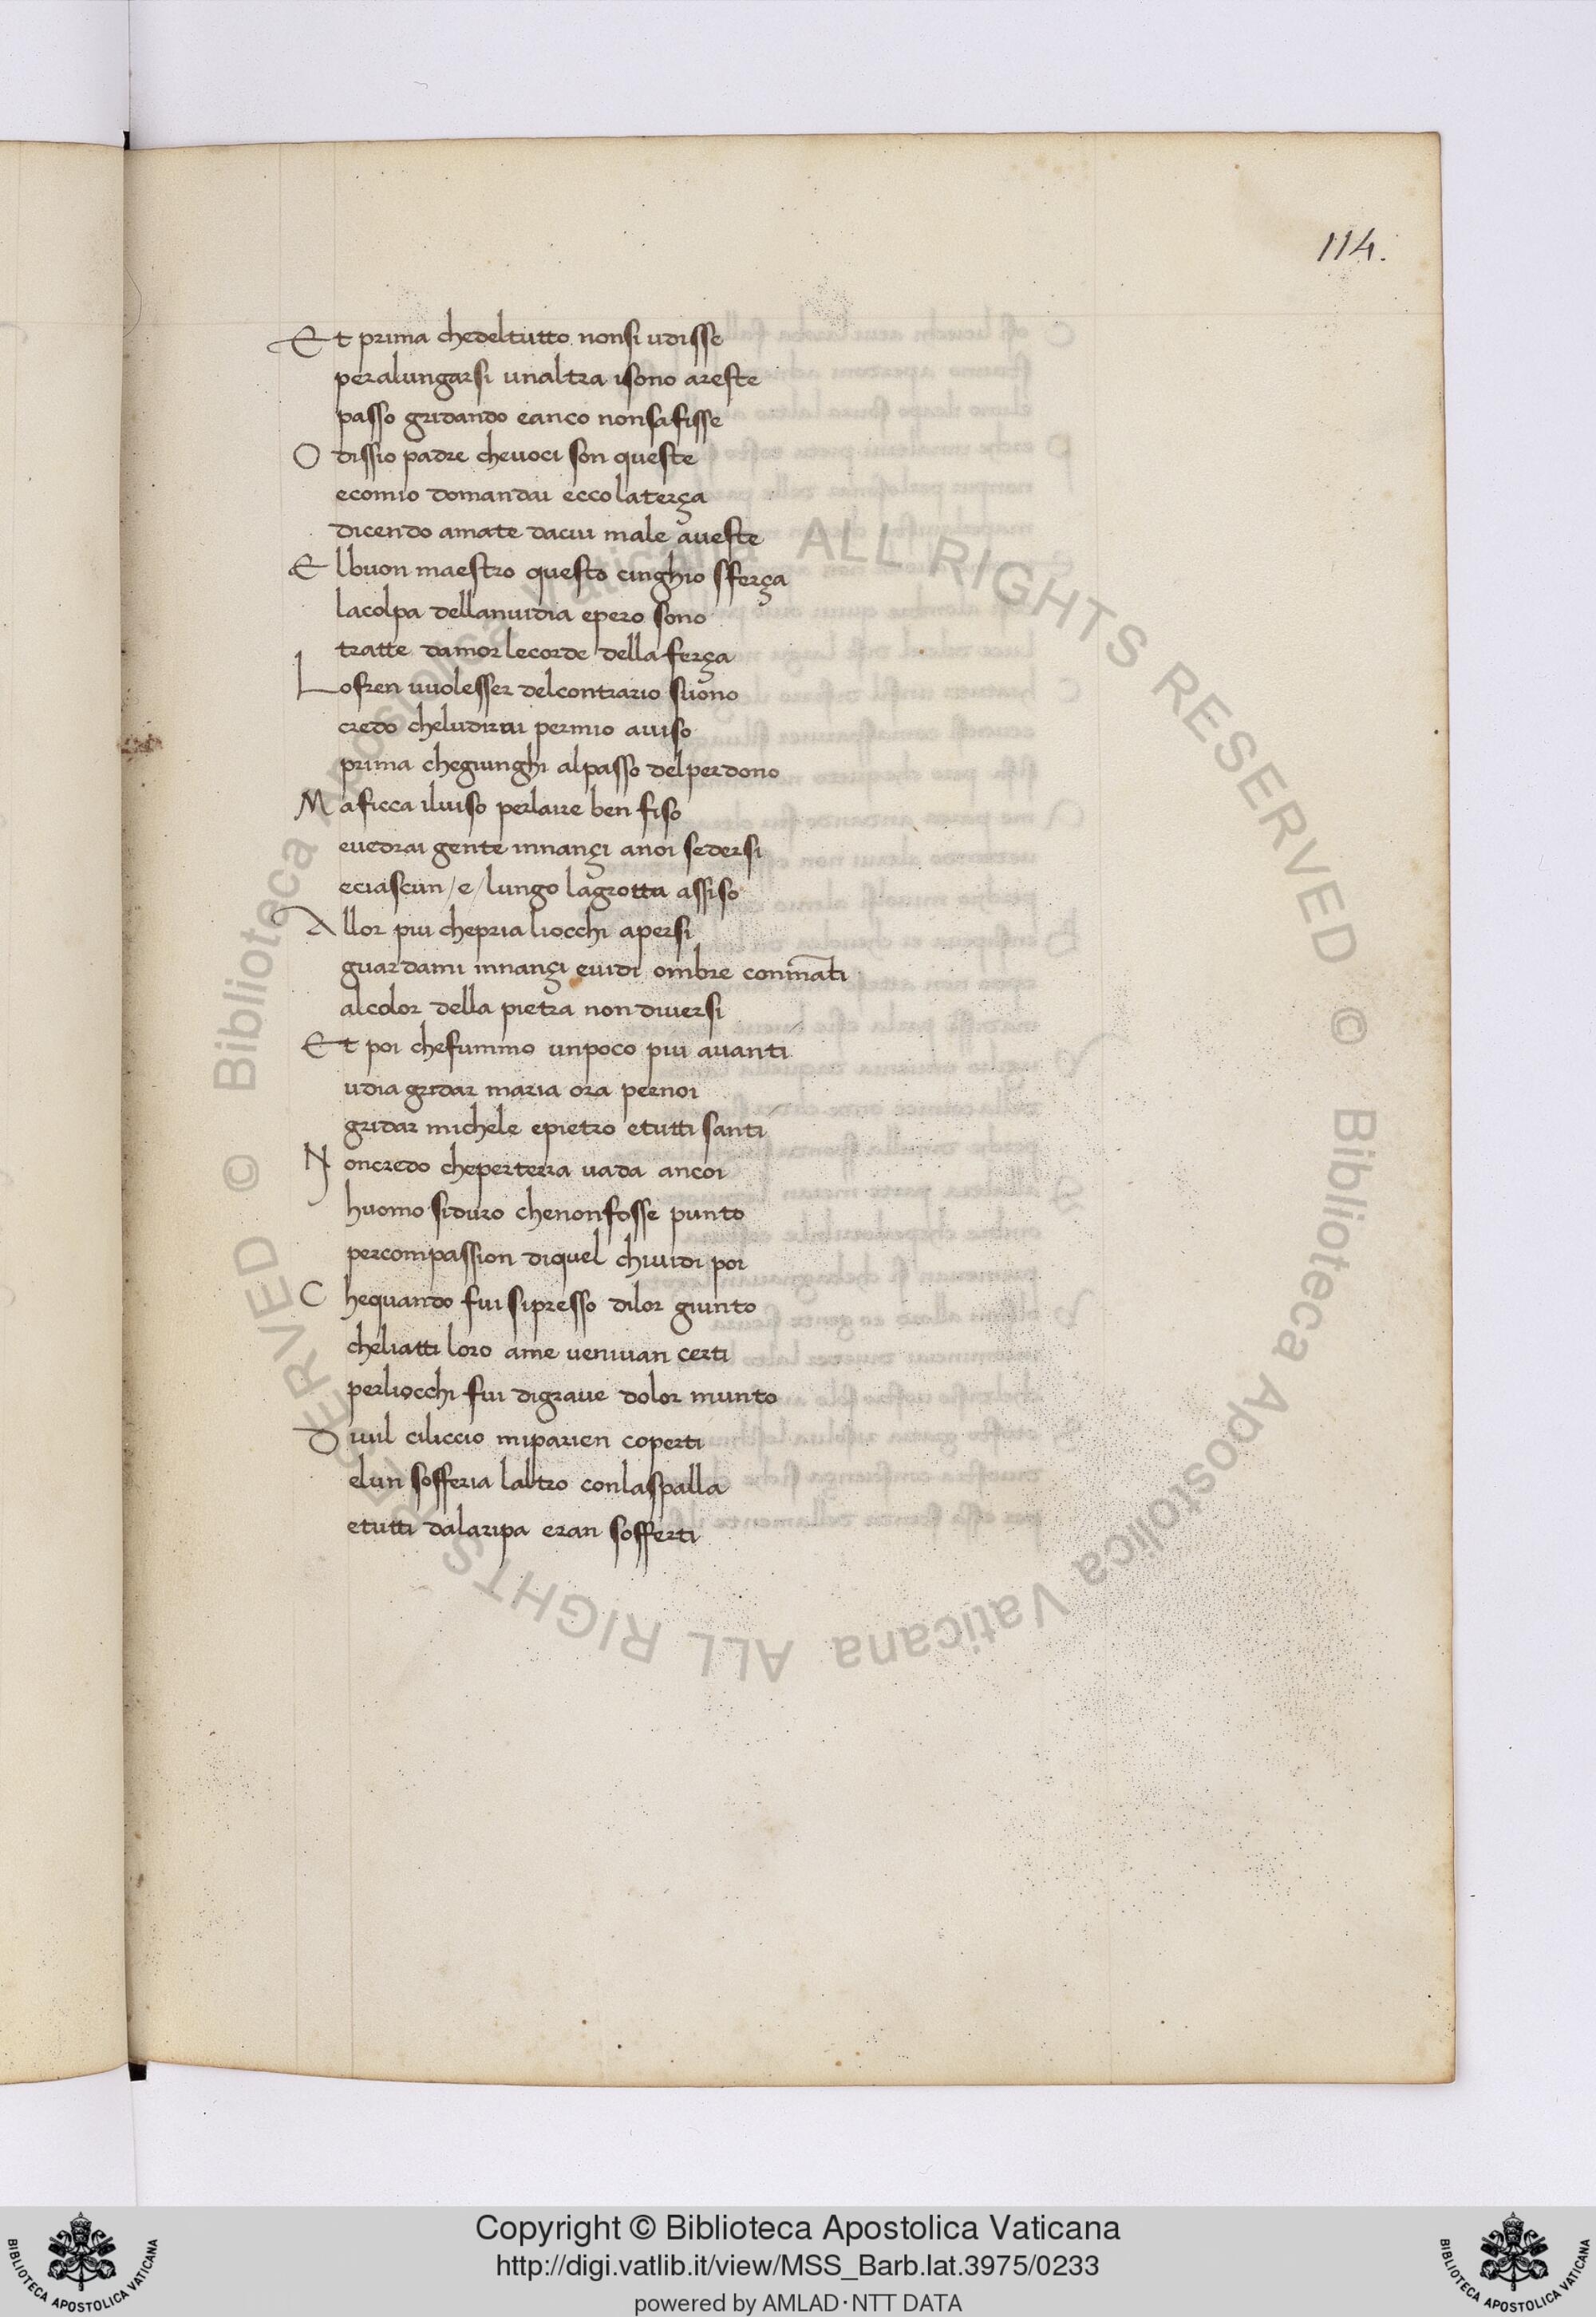 114.
Et prima chedeltutto nonsi udisse
peralungarsi unaltra isono areste
passo gridando eanco nonsafisse
O dissio padre chevoci son queste
ecomio domandai ecco laterça
dicendo amate dacui male aveste
Elbuon maestro questo cinghio sferça
lacolpa dellanuidia epero sono
tratte damor lecorde della ferça
Lofren vuolesser delcontrario suono
credo cheludirai permio auiso
prima chegiunghi alpasso delperdono
Maficca iluiso perlaire ben fiso
euedrai gente innançi anoi sedersi
eciascun /e/ lungo lagrotta assiso
Allor piu chepria liocchi apersi
guardami innançi euidi ombre conmãti
alcolor della pietra non diuersi
Et poi chefummo unpoco piu auanti
udia gridar maria ora pernoi
gridar michele epietro etutti santi
Noncredo cheperterra uada ancoi
huomo siduro chenonfosse punto
percompassion diquel chiuidi poi
Chequando fui sipresso dilor giunto
cheliatti loro ame veniuan certi
perliocchi fui digraue dolor munto
Diuil ciliccio miparien coperti
elun sofferia laltro conlaspalla
etutti dalaripa eran sofferti
© Biblioteca Apostolica Vaticana ALL RIGHTS RESERVED © Biblioteca Apostolica Vaticana ALL RIGHTS RESERVED
Copyright © Biblioteca Apostolica Vaticana
http://digi.vatlib.it/view/MSS_Barb.lat.3975/0233
powered by AMLAD·NTT DATA
BIBLIOTECA APOSTOLICA VATICANA
BIBLIOTECA APOSTOLICA VATICANA